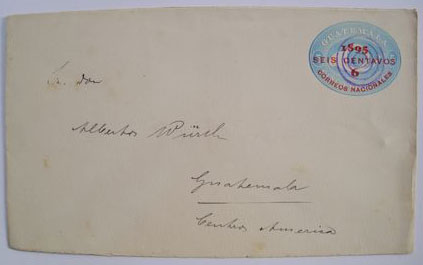 GUATEMALA
1895
SEIS CENTAVOS
6
CORREOS NACIONALES
Sr. don
Alberto Würth
Guatemala
Centro America